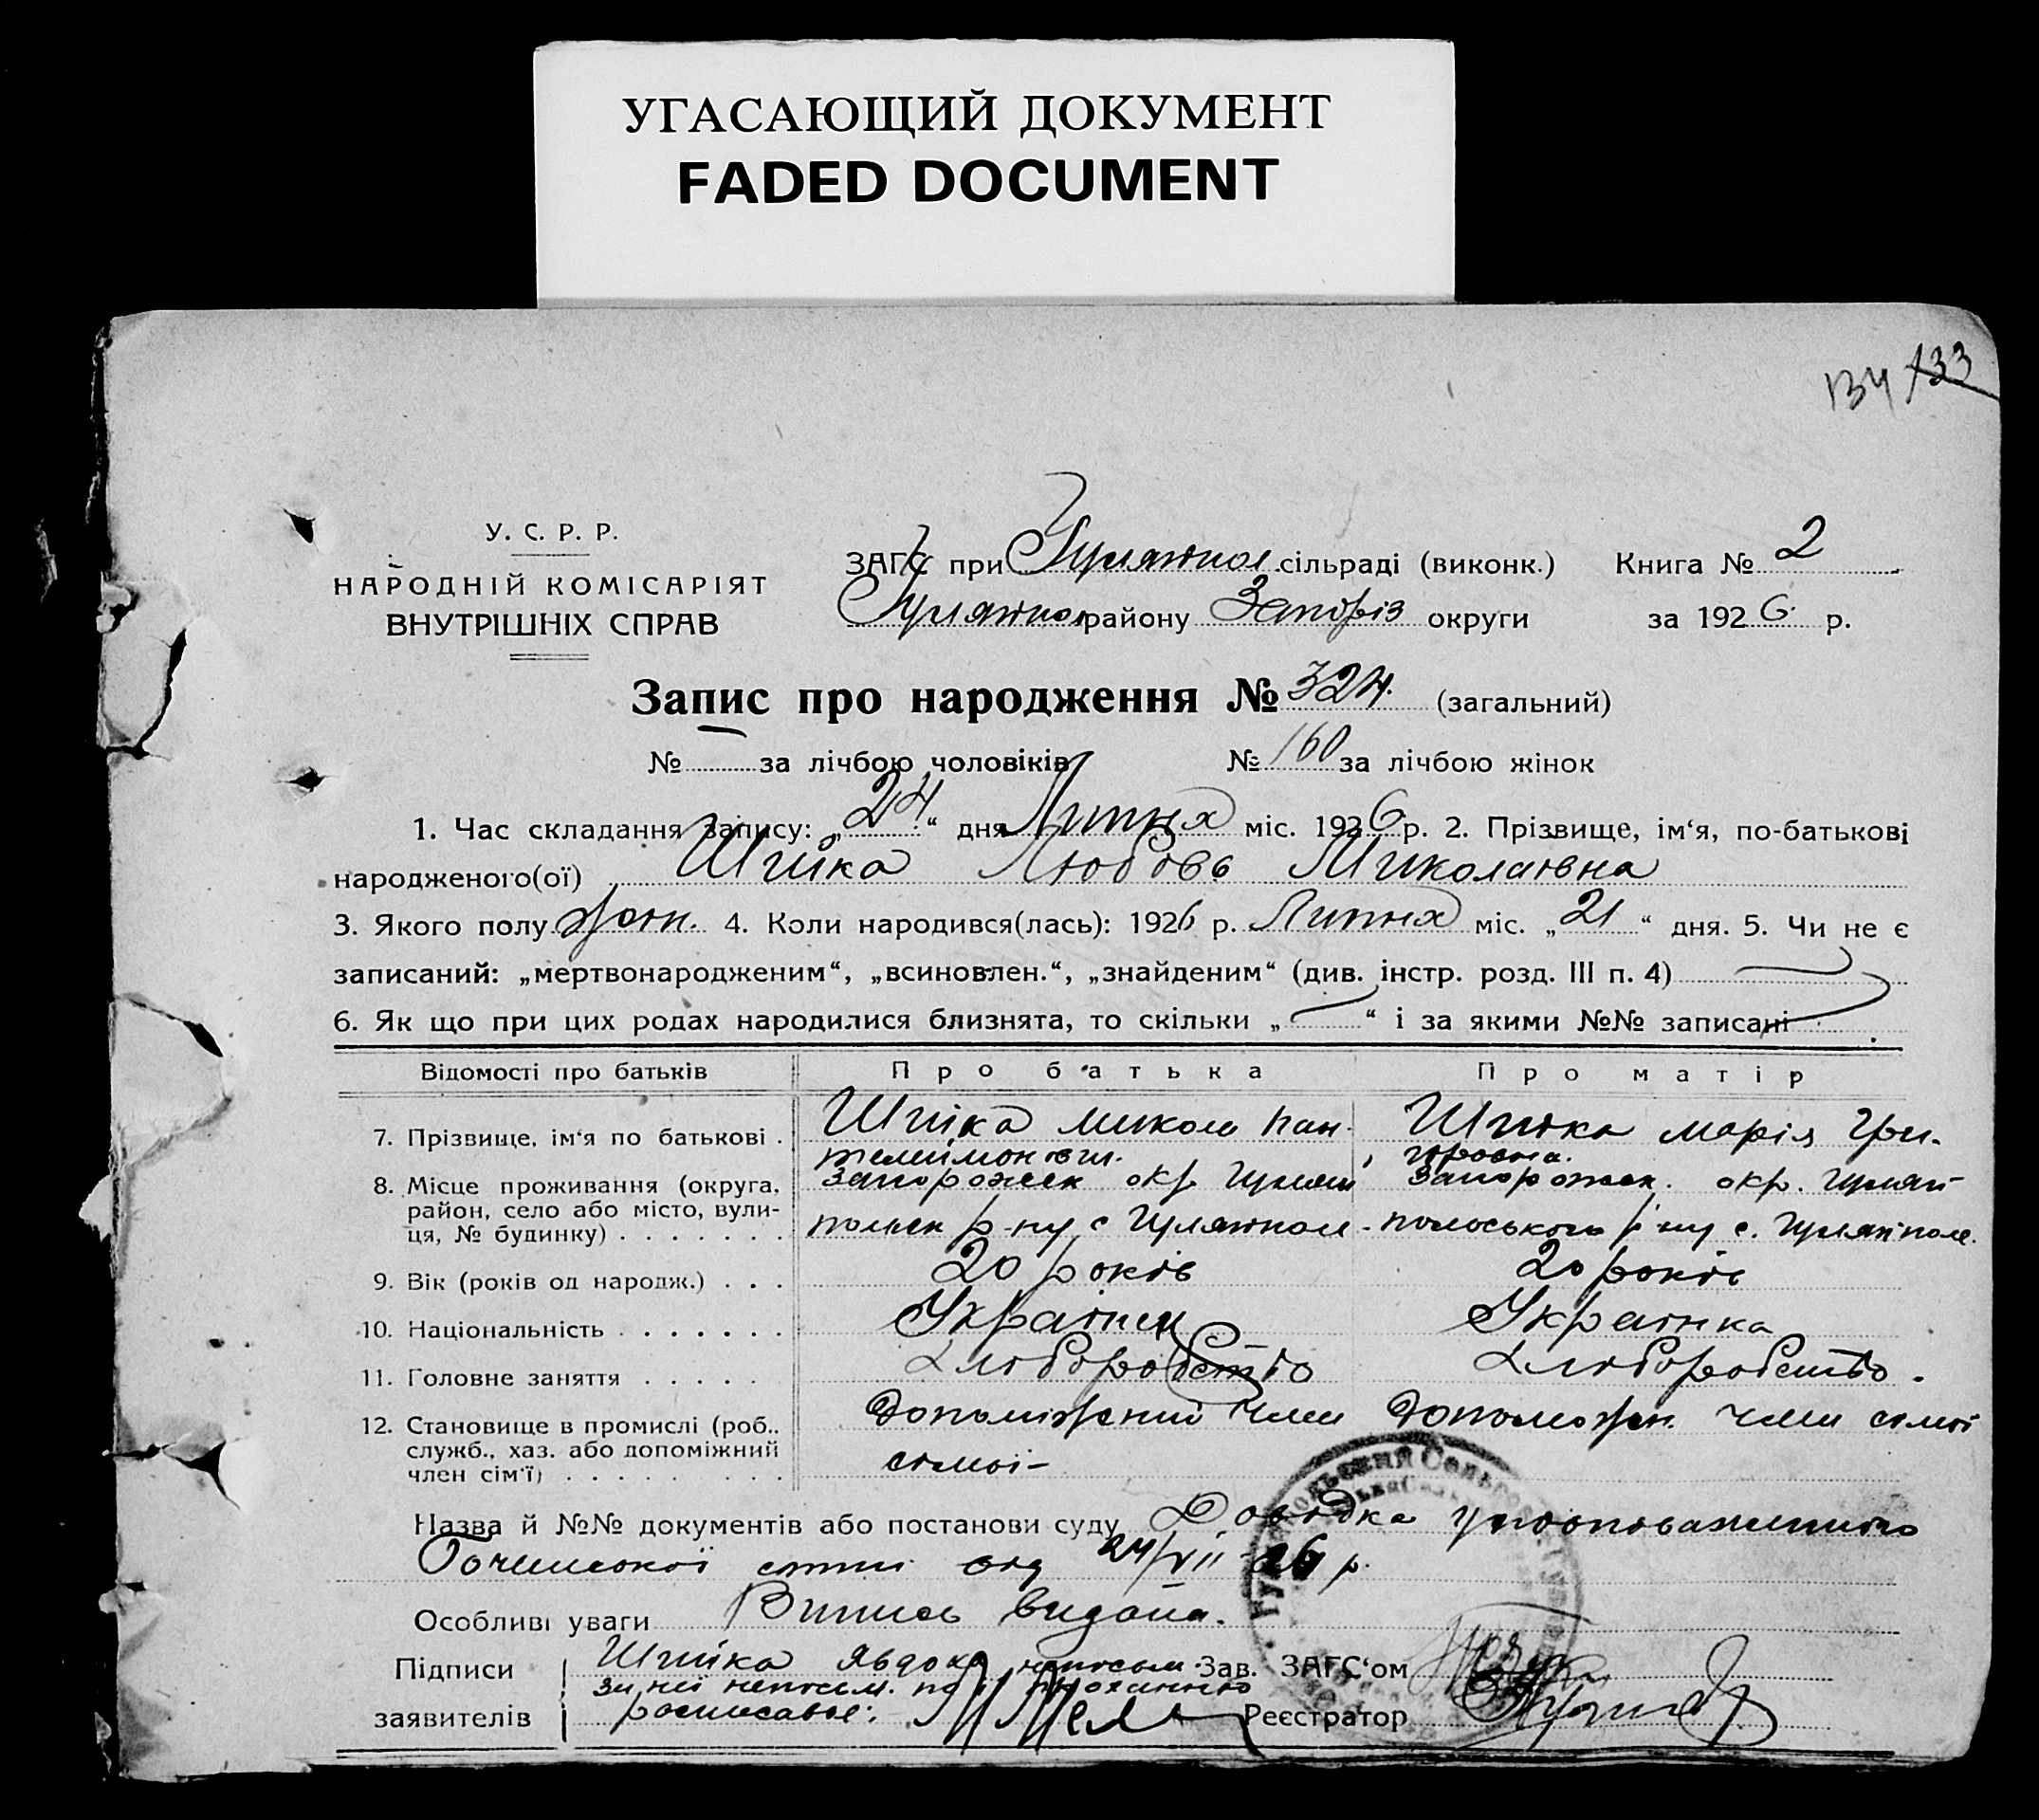 УГАСАЮЩИЙ ДОКУМЕНТ
FADED DOCUMENT
134 133
У. С. Р. Р.
НАРОДНІЙ КОМІСАРІЯТ
ВНУТРІШНІХ СПРАВ
ЗАГС при Гуляйпол сільраді (виконк.) Книга № 2
Гуляйпол району Запоріз округи за 1926 р.
Запис про народження № 324. (загальний)
№ — за лічбою чоловіків № 160 за лічбою жінок
1. Час складання запису: „24“ дня Липня міс. 1926 р. 2. Прізвище, ім‘я, по-батькові
народженого(ої) Шпіка Любовь Миколаівна
3. Якого полу жін. 4. Коли народився(лась): 1926 р. Липня міс. „21“ дня. 5. Чи не є
записаний: „мертвонародженим“, „всиновлен.“, „знайденим“ (див. інстр. розд. III п. 4)
6. Як що при цих родах народилися близнята, то скільки „—“ і за якими №№ записані
Відомості про батьків Про батька Про матір
7. Прізвище, ім‘я по батькові Шпіка Микола Пантелеймонович. Шпіка Марія Григоровна.
8. Місце проживання (округа, район, село або місто, вулиця, № будинку) Запорожск окр Гуляйпольск р-ну с Гуляйполе Запорожск. окр. Гуляйпольського р-ну с. Гуляйполе.
9. Вік (років од народж.) 20 років 20 років
10. Національність Українец Українка
11. Головне заняття Хліборобство Хліборобство.
12. Становище в промислі (роб., служб., хаз. або допоміжний член сім‘ї) Допоміжний член сімьі Допоможн. член сімьі
Назва й №№ документів або постанови суду Довідка уповноваженного
сотні від 24/VII 26 р.
Особливі уваги Випись видана.
Підписи Шпіка Явдоха неписьм. Зав. ЗАГС‘ом
за неі неписьм. по проханню
заявителів росписався: Реєстратор